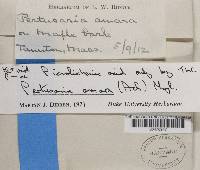 HERBARIUM OF L. W. RIDDLE
Pertusaria amara
on Maple bark
Taunton, Mass. 5/9/12
Picrolichenic acid only by TLC
Pertusaria amara (Ach.) Nyl.
MARTIN J. DIBBEN, 1971 Duke University Herbarium